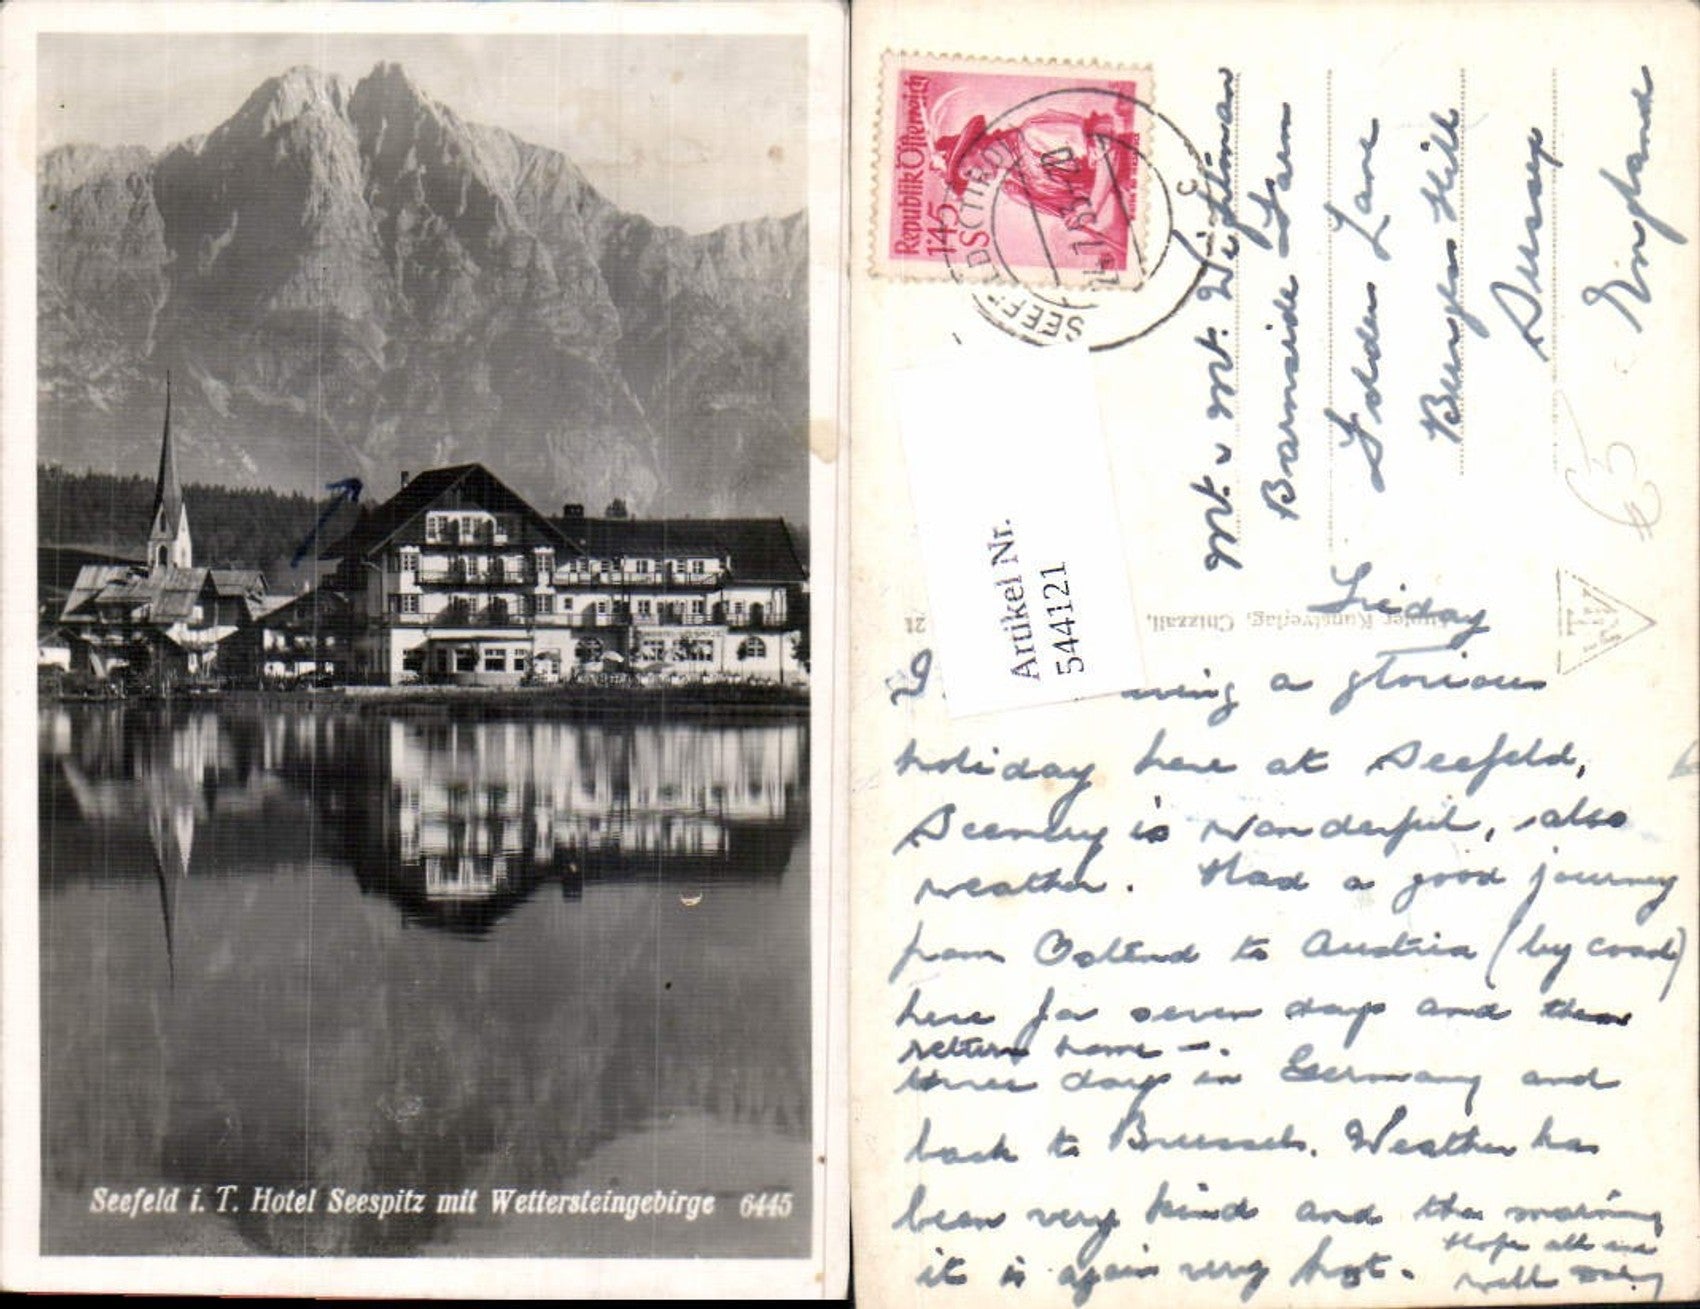 Seefeld i. T. Hotel Seespitz mit Wettersteingebirge 6445
Republik Österreich
1'45 S
SEEFELD (TIROL)
Artikel Nr.
544121
Kunstverlag, Chizzali,
Burnside Farm
Lane
Burgess Hill
Sussex
England
£5
Friday
I a glorious
holiday here at Seefeld,
Scenery is wonderful, also
weather. Had a good journey
from Ostend to Austria (by coach)
here for seven days and then
return home -.
three days in Germany and
back to Brussels. Weather has
been very kind and this morning
it is again very hot.
Hope all are
well